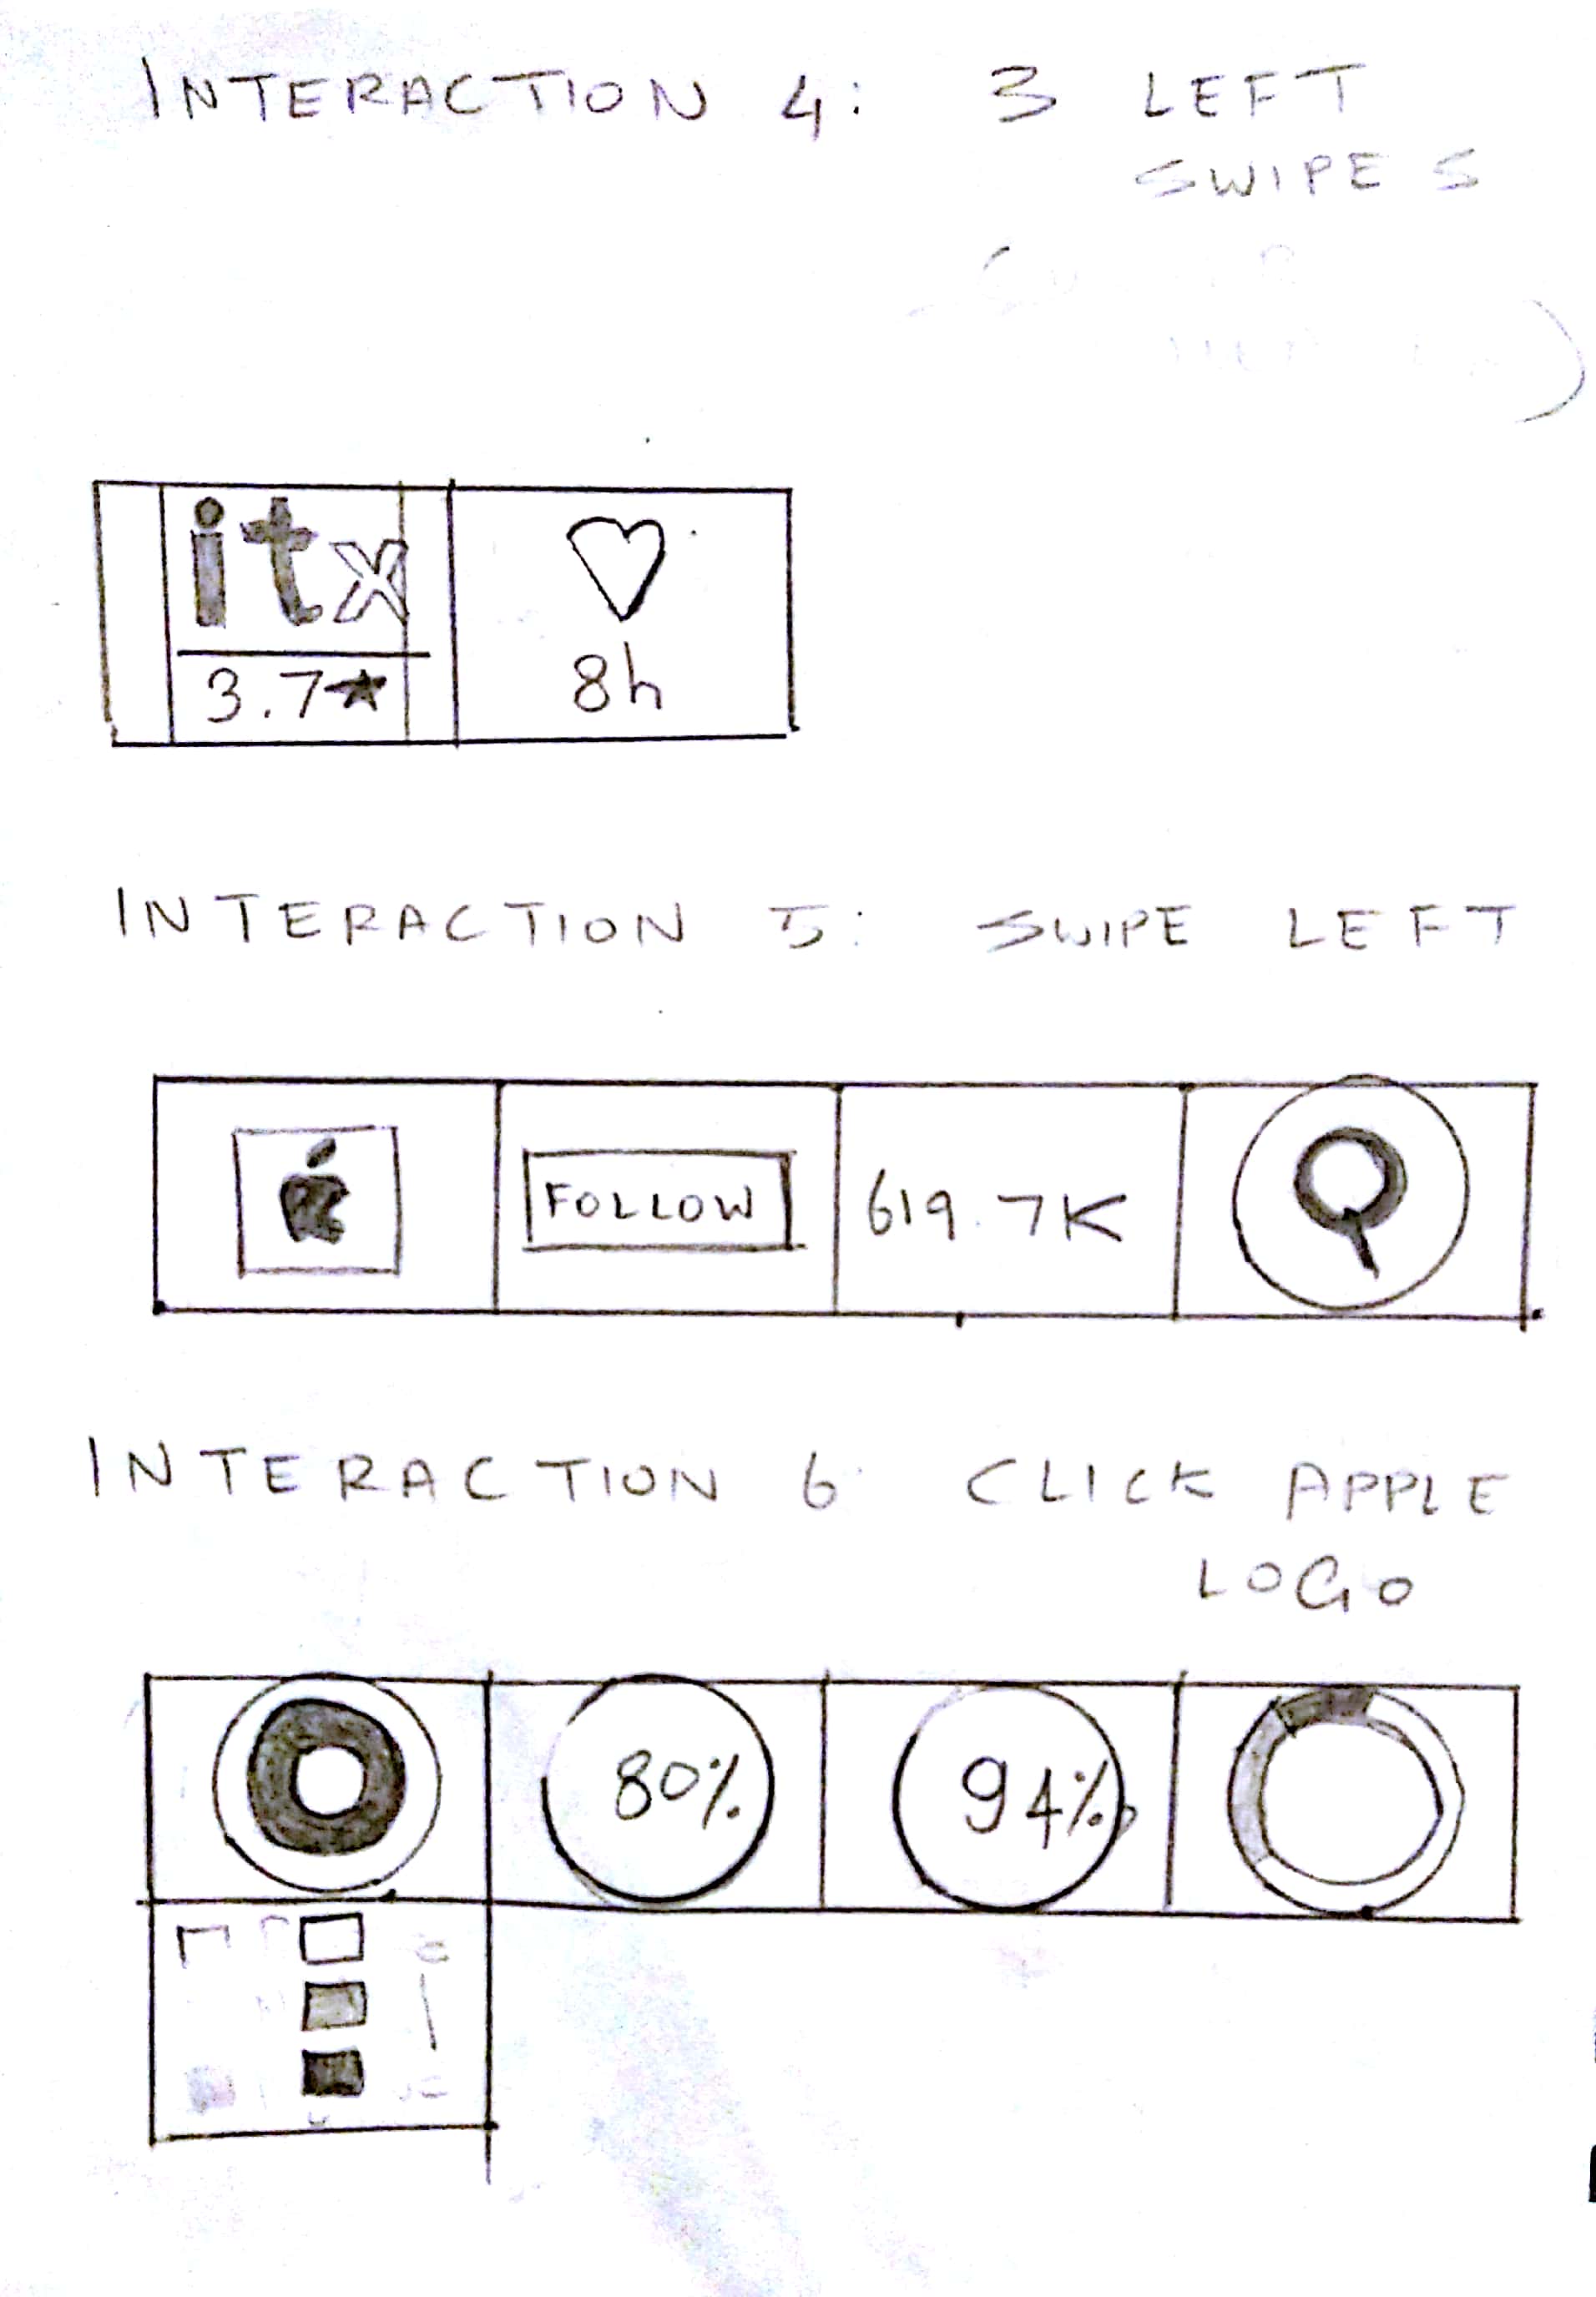 INTERACTION 4: 3 LEFT
SWIPES
itx
3.7★ 8h
INTERACTION 5: SWIPE LEFT
FOLLOW 619.7K
INTERACTION 6 CLICK APPLE
LOGO
80% 94%